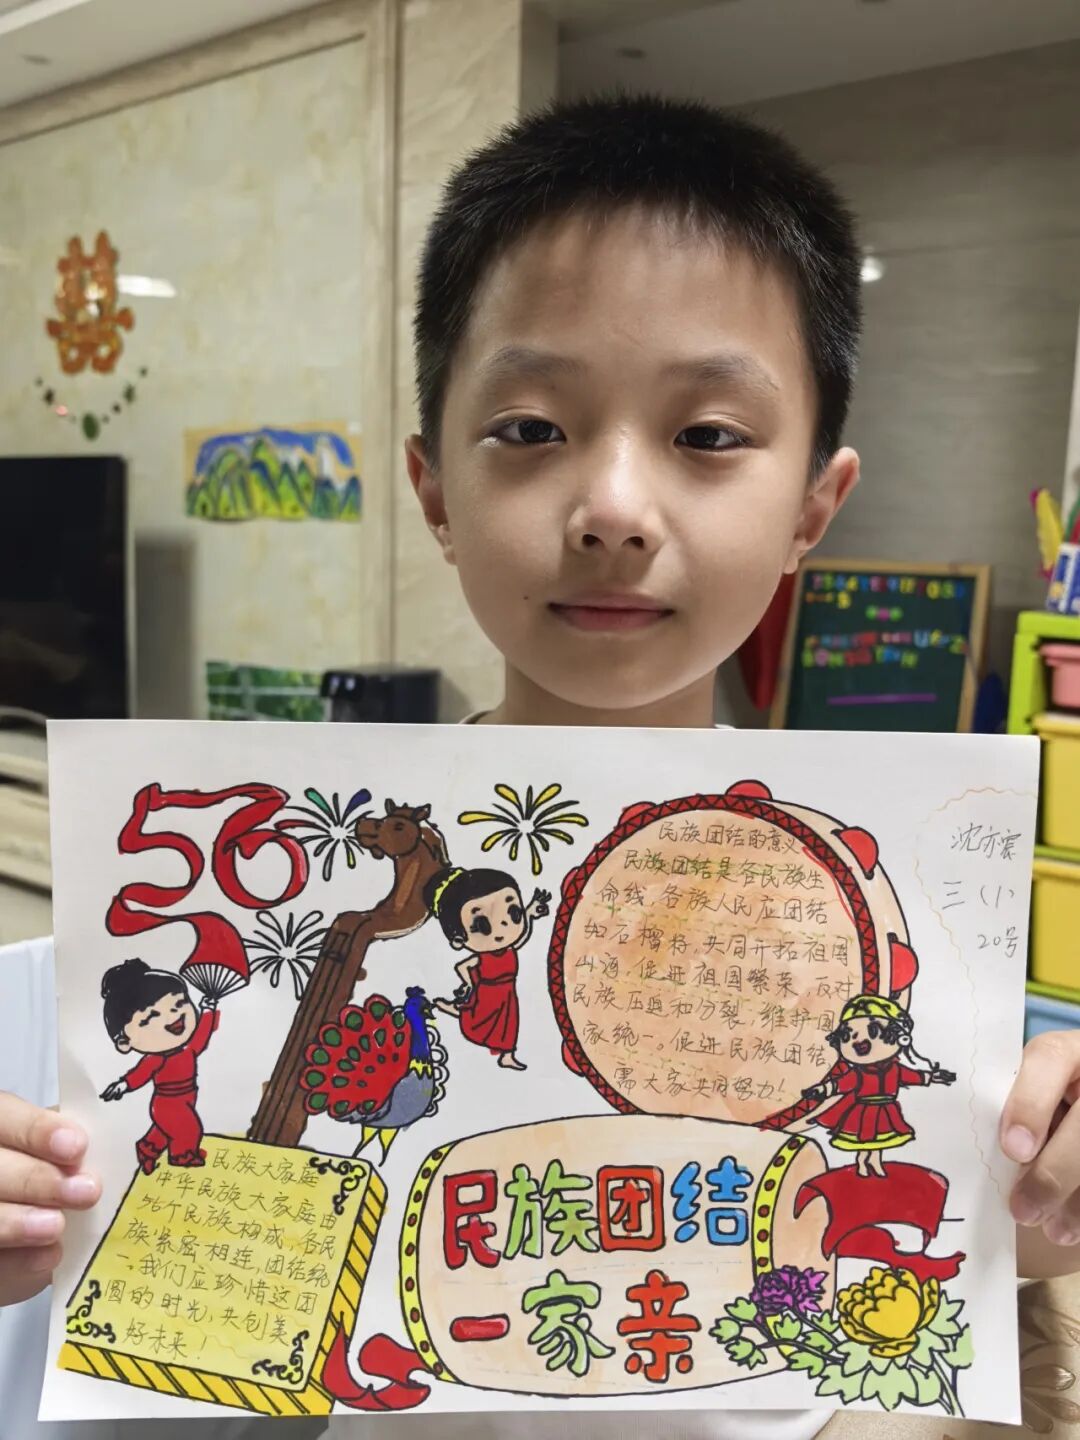 囍
56
民族团结的意义
民族团结是各民族生
命线，各族人民应团结
如石榴籽，共同开拓祖国
山河，促进祖国繁荣，反对
民族压迫和分裂；维护国
家统一。促进民族团结，
需大家共同努力！
沈亦宸
三（1）
20号
民族大家庭
中华民族大家庭由
56个民族构成，各民
族紧密相连，团结统
一。我们应珍惜这团
圆的时光，共创美
好未来！
民族团结
一家亲